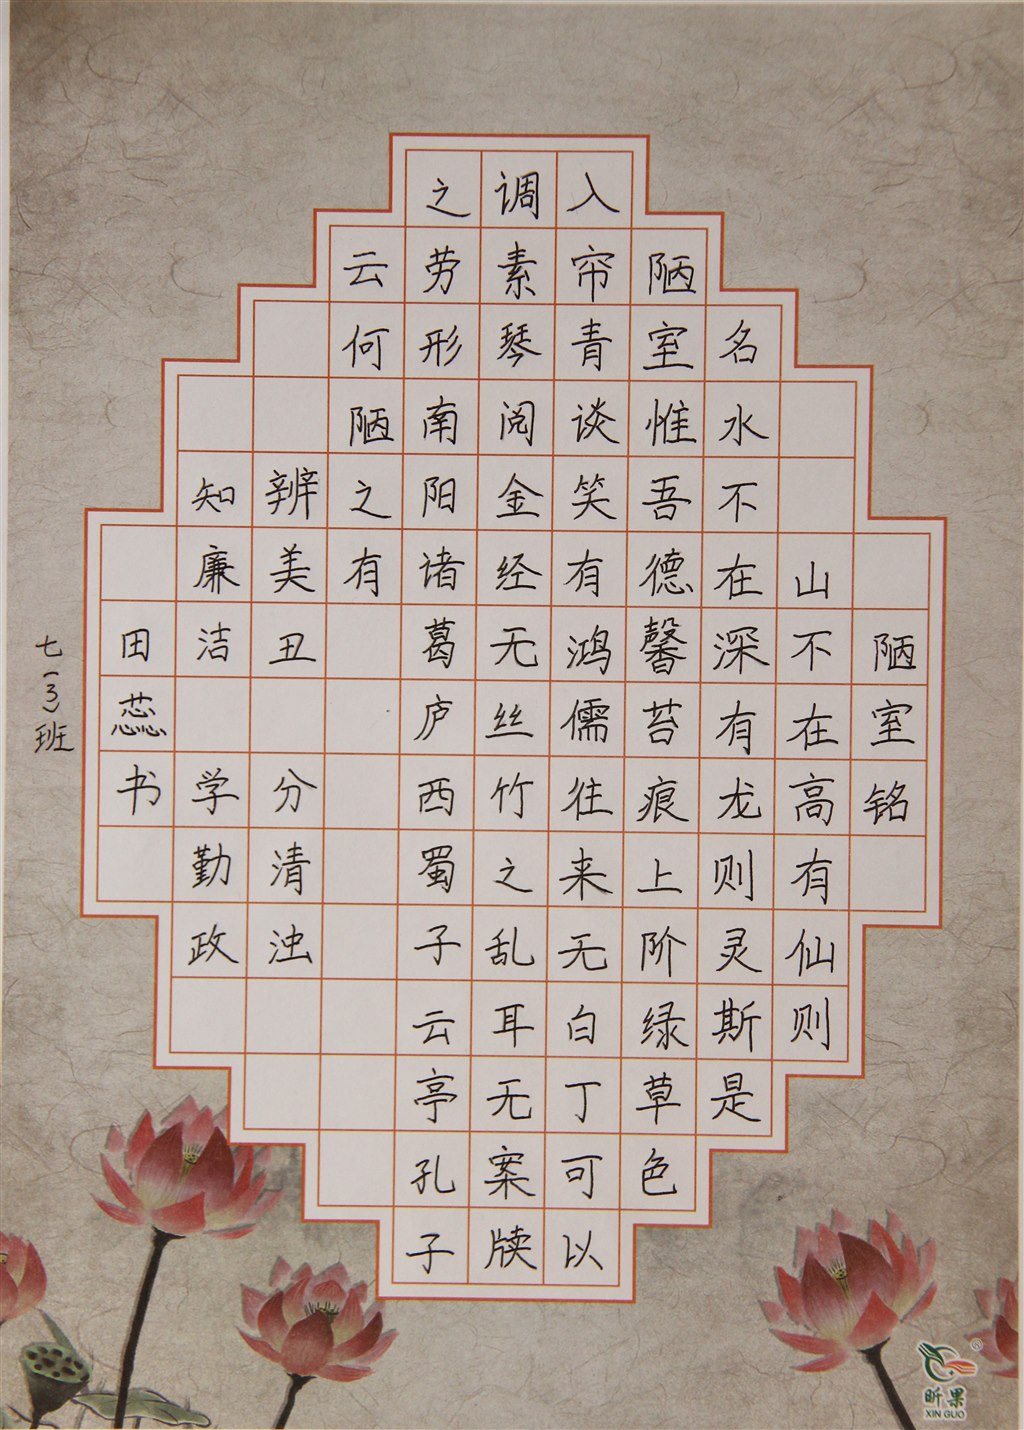 陋室铭
山不在高有仙则
名水不在深有龙则灵斯是
陋室惟吾德馨苔痕上阶绿草色
入帘青谈笑有鸿儒往来无白丁可以
调素琴阅金经无丝竹之乱耳无案牍
之劳形南阳诸葛庐西蜀子云亭孔子
云何陋之有
辨美丑 分清浊
知廉洁 学勤政
田蕊书
七(3)班
昕果
XIN GUO
®